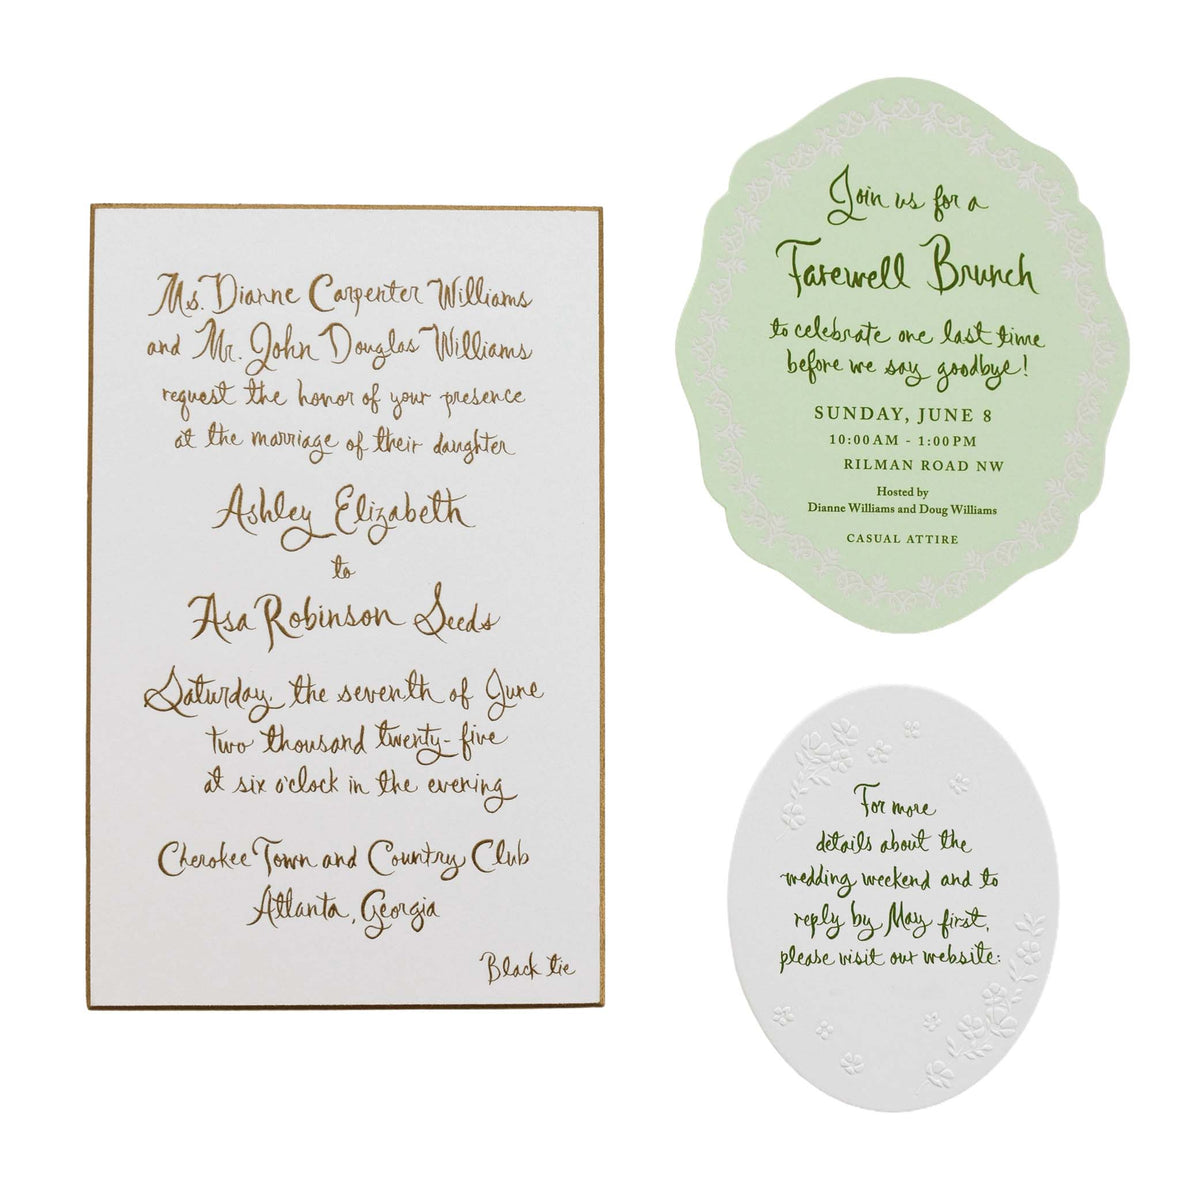 Ms. Dianne Carpenter Williams
and Mr. John Douglas Williams
request the honor of your presence
at the marriage of their daughter
Ashley Elizabeth
to
Asa Robinson Seeds
Saturday, the seventh of June
two thousand twenty-five
at six o'clock in the evening
Cherokee Town and Country Club
Atlanta, Georgia
Black tie
Join us for a
Farewell Brunch
to celebrate one last time
before we say goodbye!
SUNDAY, JUNE 8
10:00 AM - 1:00 PM
RILMAN ROAD NW
Hosted by
Dianne Williams and Doug Williams
CASUAL ATTIRE
For more
details about the
wedding weekend and to
reply by May first,
please visit our website: